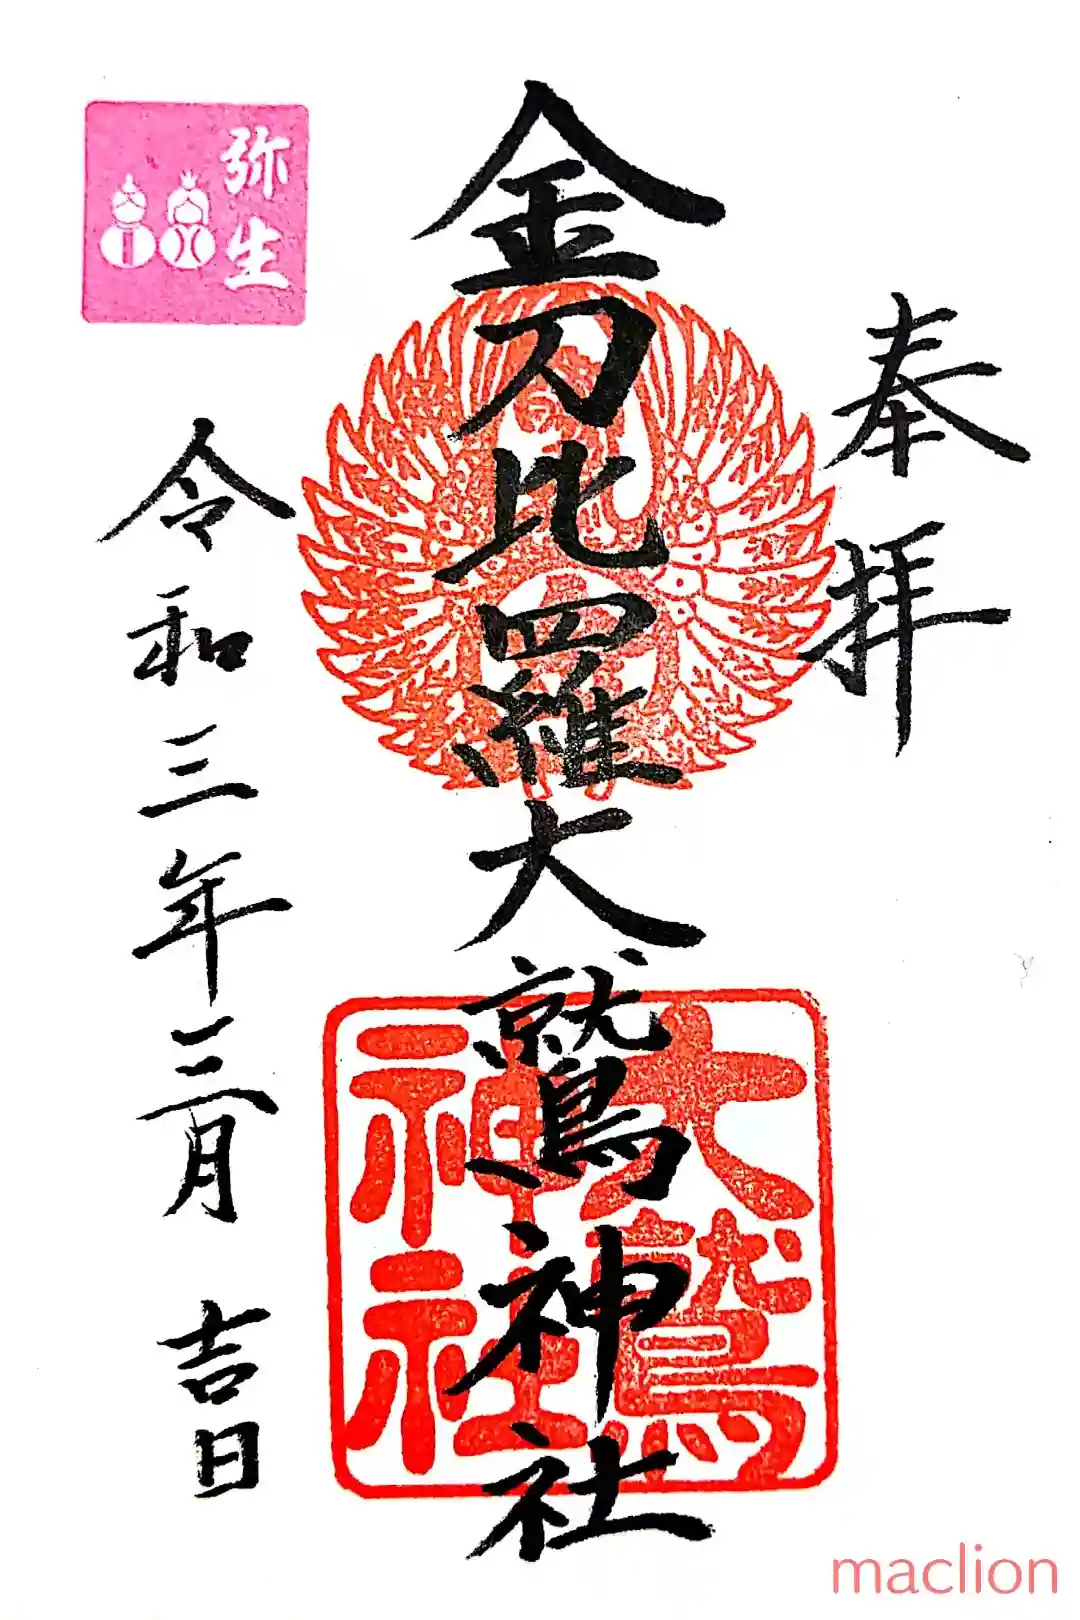 奉拝
金刀比羅大鷲神社
大鷲
神社
弥生
令和三年三月 吉日
maclion